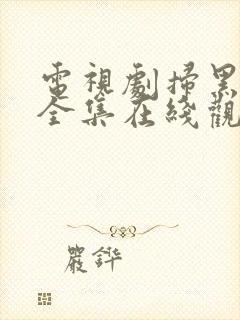 電視劇掃黑
全集在綫觀
嚴鏵